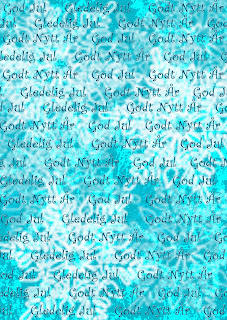 God Jul Gledelig Jul God Jul
Gledelig Jul Godt Nytt År
Godt Nytt År God Jul Godt
Gledelig Jul Gledelig Jul
Godt Nytt År God Jul Godt Nytt År
Gledelig Jul God Jul
Jul Gledelig Jul Godt Nytt År
Godt Nytt År God Jul Godt Nytt År
Gledelig Jul Godt Nytt År
Jul Godt Nytt År God Jul Godt
Gledelig Jul Godt Nytt År God Jul
Godt Nytt År God Jul Godt Nytt År
God Jul Gledelig Jul Godt Nytt År
Gledelig Jul Godt Nytt År God Jul
Jul Gledelig Jul Godt Nytt År
God Jul Gledelig Jul Godt Nytt År
Gledelig Jul Godt Nytt År God Jul
God Jul Gledelig Jul Godt Nytt År